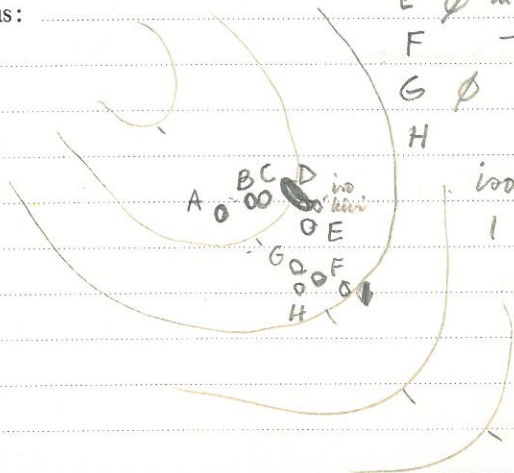 us:
E ø m
F -
G ø
H
iso
1
A B C D
iso
kivi
E
G F
H